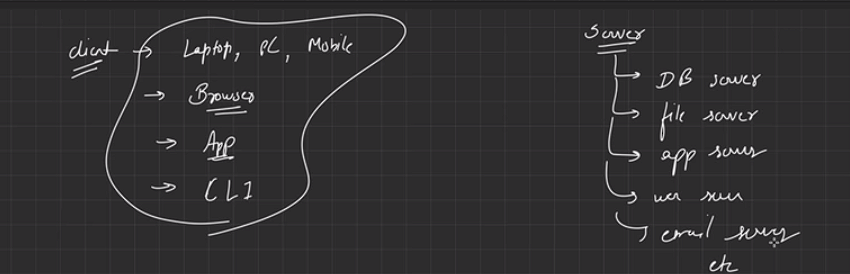 client → Laptop, PC, Mobile
→ Browser
→ App
→ CLI
Server
→ DB server
→ file server
→ app server
→ email server
etc